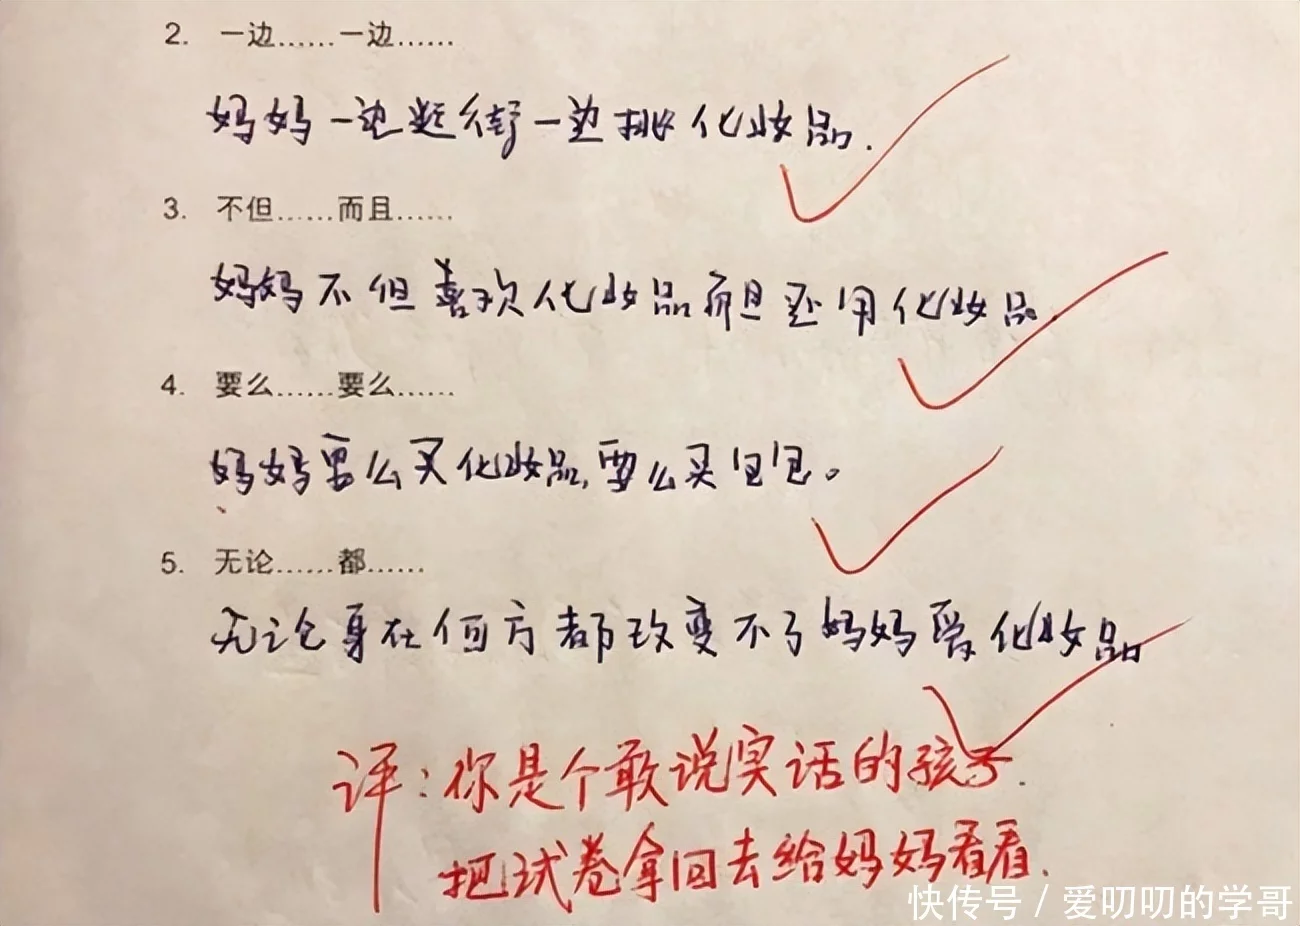 2. 一边……一边……
妈妈一边逛街一边挑化妆品.
3. 不但……而且……
妈妈不但喜欢化妆品而且还用化妆品.
4. 要么……要么……
妈妈要么买化妆品,要么买包包。
5. 无论……都……
无论身在何方都改变不了妈妈爱化妆品
评:你是个敢说实话的孩子.
把试卷拿回去给妈妈看看.
快传号/爱叨叨的学哥